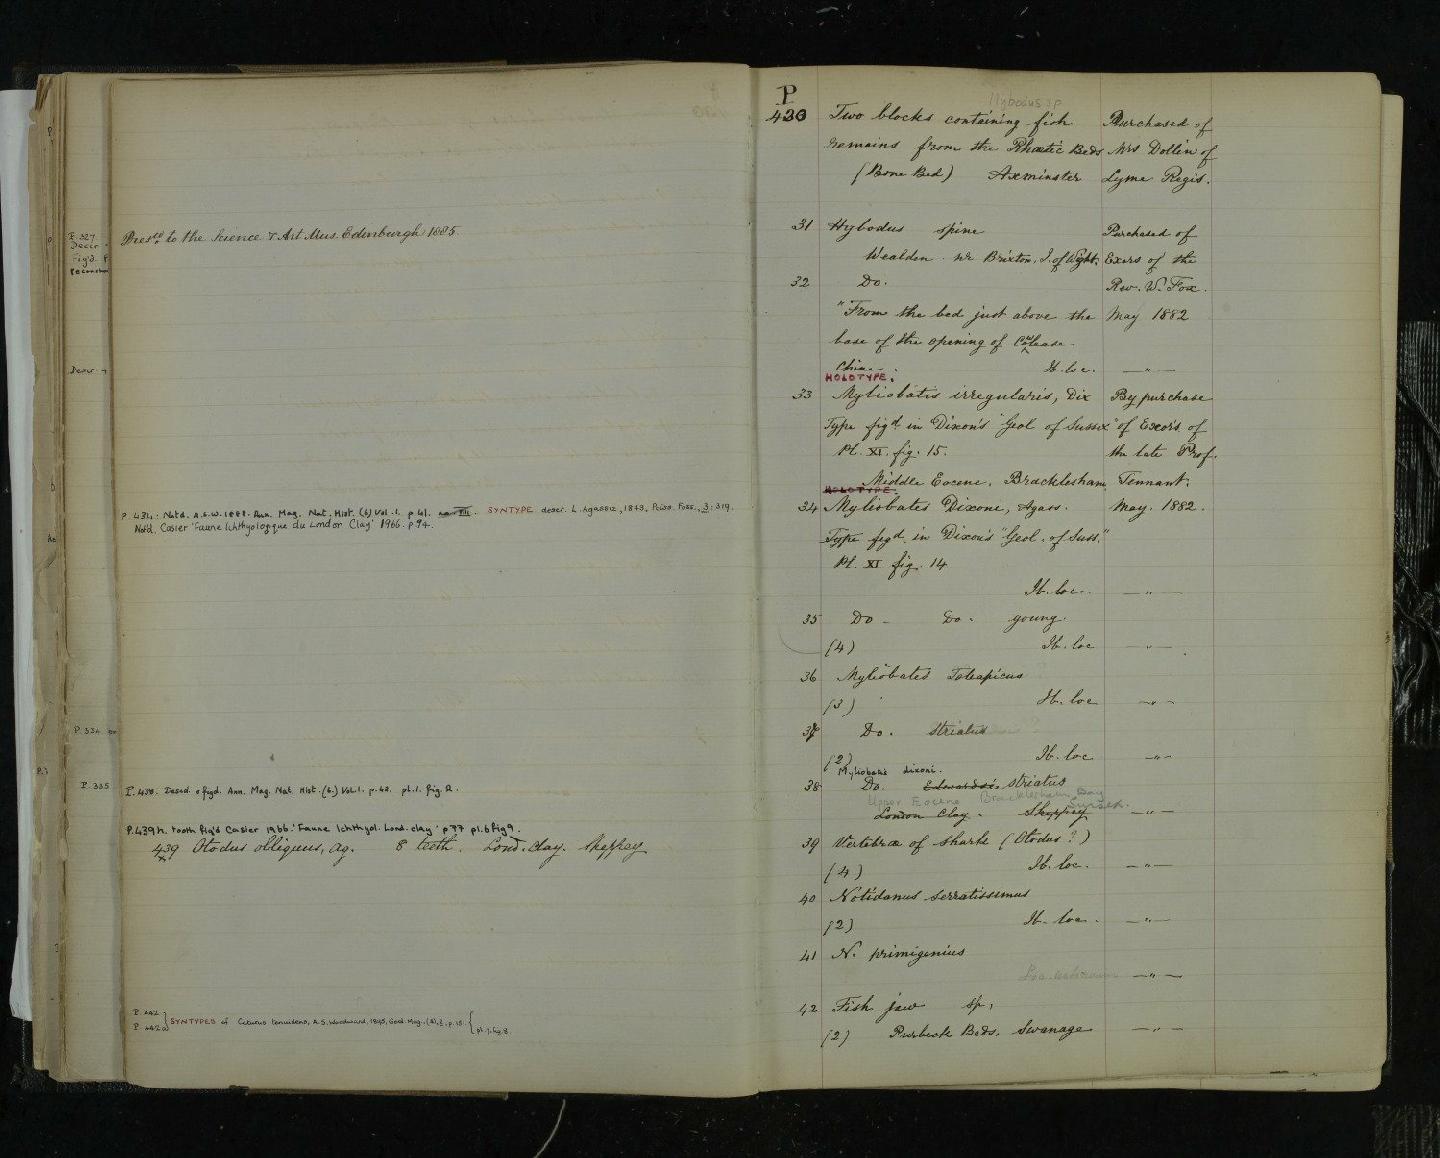 P. 327
Descr.
Fig'd.
Descr.
P. 334
P. 335
Pres.ed to the Science & Art Mus. Edinburgh 1885.
P. 434: Notd. A.S.W. 1888. Ann. Mag. Nat. Hist. (6) Vol. 1. p 41. SYNTYPE descr. L. Agassiz, 1843, Poiss. Foss., 3: 319.
Notd. Casier 'Faune Ichthyologique du London Clay' 1966. p 94.
P. 438. Descd. & figd. Ann. Mag. Nat. Hist. (6.) Vol. 1. p. 42. pl. 1. fig. 2.
P. 439 h. tooth fig'd Casier 1966. 'Faune Ichthyol. Lond. clay' p 77 pl. 6 fig 9.
439 x Otodus obliquus, Ag. 8 teeth. Lond. clay. Sheppey
P. 442
P. 442a } SYNTYPES of Caturus tenuidens, A.S. Woodward, 1895, Geol. Mag. (4), 2, p. 151 { pl. 7, fig. 8.
P
Hybodus sp
430 Two blocks containing fish Purchased of
remains from the Rhætic Beds Mrs Dollin of
(Bone Bed) Axminster Lyme Regis.
31 Hybodus spine Purchased of
Wealden. nr Brixton. I. of Wight. Exors of the
32 Do. Rev. W. Fox.
"From the bed just above the May 1882
base of the opening of Cowlease
Chine. Ib. loc. —"—
HOLOTYPE.
33 Myliobatis irregularis, Dix By purchase
Type figd in Dixon's "Geol of Sussex" of Exors of
Pl. XI. fig. 15. the late Prof.
Middle Eocene. Bracklesham Tennant.
HOLOTYPE.
34 Myliobates Dixoni, Agass. May. 1882.
Type figd. in Dixon's "Geol. of Suss."
Pl. XI fig. 14
Ib. loc. —"—
35 Do - Do. young.
(4) Ib. loc —"—
36 Myliobates Toliapicus
(3) Ib. loc —"—
37 Do. striatus
(2) Ib. loc —"—
Myliobatis dixoni.
38 Do. Edwardsi. striatus
Upper Eocene Bracklesham Bay
London Clay. Sheppey Sussex. —"—
39 Vertebræ of Shark (Otodus?)
(4) Ib. loc. —"—
40 Notidanus serratissimus
(2) Ib. loc. —"—
41 N. primigenius
Loc. unknown —"—
42 Fish jaw sp,
(2) Purbeck Beds. Swanage —"—